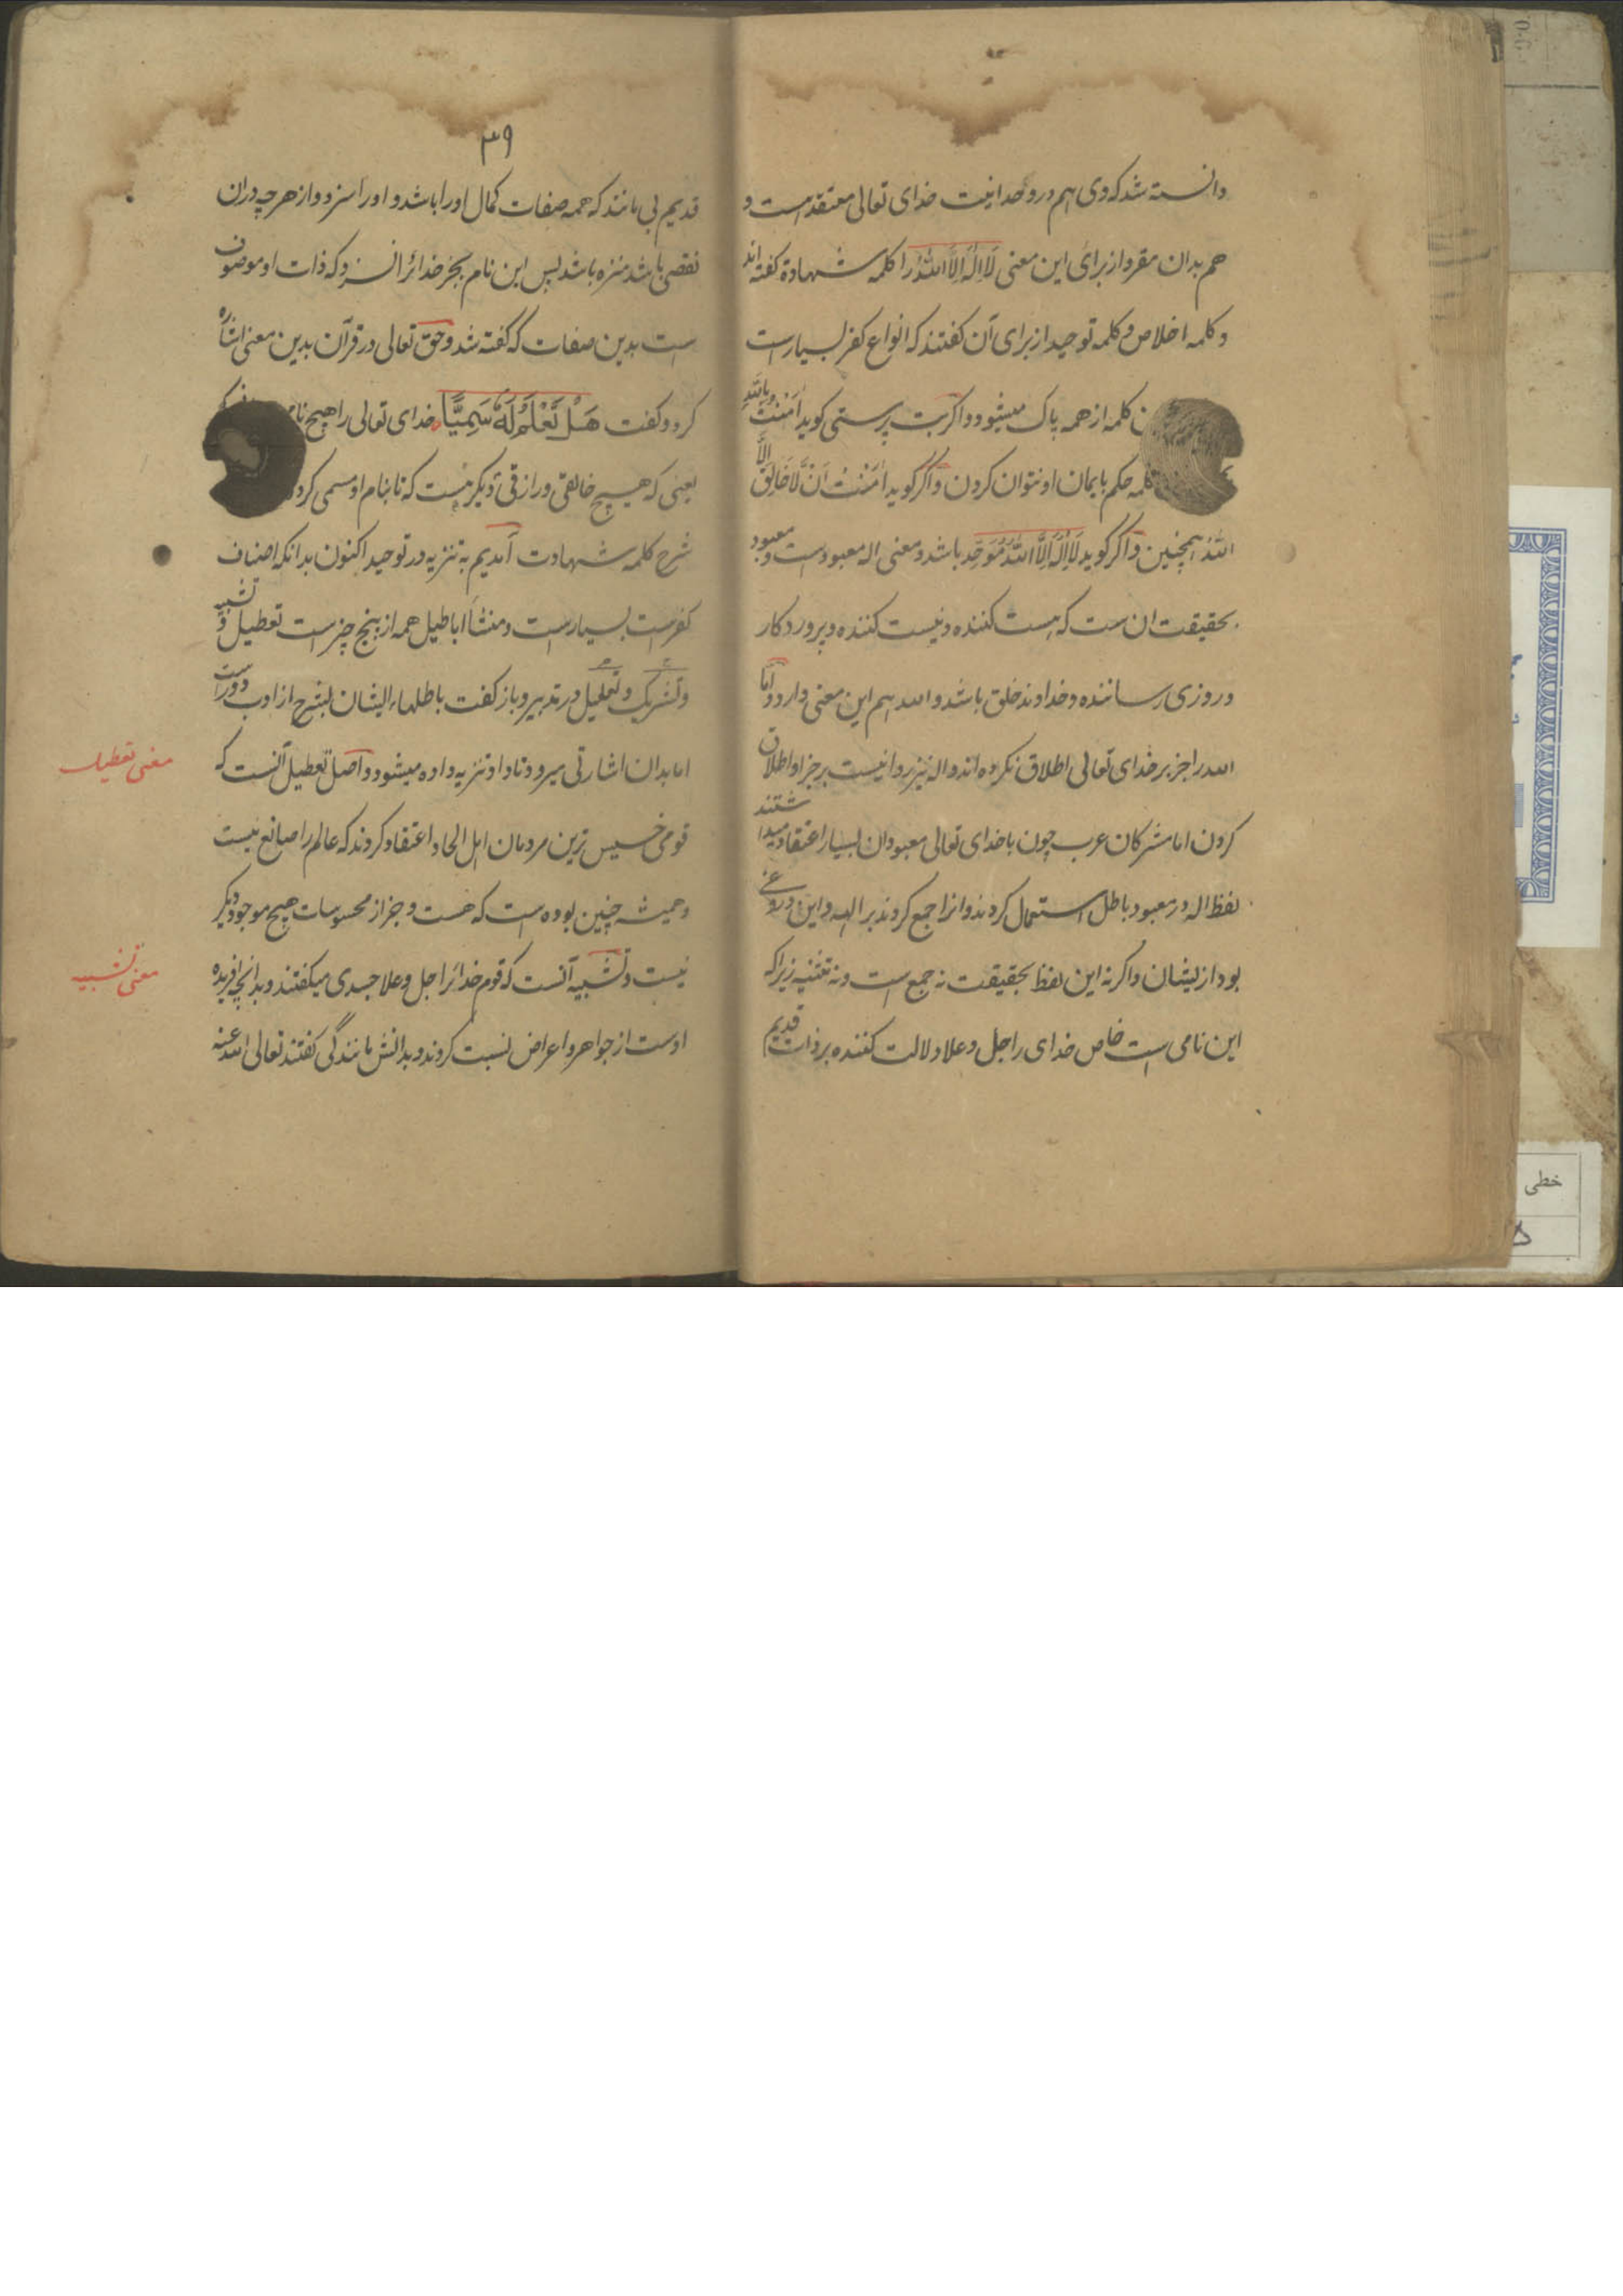 دانسته شد که وی هم در وحدانیت خدای تعالی معتقدست و
هم بدان مقر و از برای این معنی لَا اِلٰهَ اِلَّا اللّٰهُ را کلمه شهادة کفته اند
و کلمه اخلاص و کلمه توحید از برای آن کفتند که انواع کفر بسیارست
کلمه از همه پاک میشود و اکر بت پرستی کوید اٰمَنْتُ بِاللّٰهِ
کلمه حکم بایمان او نتوان کردن و اکر کوید اٰمَنْتُ اَنْ لَّا خَالِقَ اِلَّا
اللّٰهُ همچنین و اکر کوید لَا اِلٰهَ اِلَّا اللّٰهُ مُوَحِّد باشد و معنی اله معبودست و معبود
بحقیقت ان ست که هست کننده و نیست کننده و پروردکار
و روزی رساننده و خداوند خلق باشد و الله هم این معنی دارد و اَمَّا
الله را جز بر خدای تعالی اطلاق نکرده اند و اله نیز روا نیست بر جز او اطلاق
کردن اما مشرکان عرب چون با خدای تعالی معبودان بسیار اعتقاد میداشتند
لفظ اله در معبود باطل استعمال کردند و انرا جمع کردند بر الهه و این دروغی
بود از یشان و اکر نه این لفظ بحقیقت نه جمع است و نه تثنیه زیرا که
این نامی است خاص خدای را جل و علا دلالت کننده بر ذات قدیم
۳۹
قدیم بی مانند که همه صفات کمال او را باشد و او را سزد و از هر چه دران
نقصی باشد منزه باشد پس این نام بجز خدائرا نسزد که ذات او موصوف
است بدین صفات که کفته شد و حق تعالی در قرآن بدین معنی اشاره
کرد و کفت هَلْ تَعْلَمُ لَهٗ سَمِیًّا خدای تعالی را هیچ
یعنی که هیچ خالقی و رازقی دیکر نیست که تا بنام او مسمی کرد
شرح کلمه شهادت آمدیم به تنزیه در توحید اکنون بدانکه اصناف
کفرست بسیارست و منشأ اباطیل همه از پنج چیزست تعطیل و تشبیه
و تشریک و تعلیل در تدبیر و باز کفت باطلهاء ایشان بشرح از ادب دورست
اما بدان اشارتی میرود تا داد تنزیه داده میشود و اصل تعطیل آنست که
قومی خسیس ترین مردمان اهل الحاد اعتقاد کردند که عالم را صانع نیست
و همیشه چنین بوده است که هست و جز از محسوسات هیچ موجود دیکر
نیست و تشبیه آنست که قوم خدائرا جل و علا جسدی میکفتند و بدانچ افریده
اوست از جواهر و اعراض نسبت کردند و بدانش مانندکی کفتند تعالی الله عنه
معنی تعطیل
معنی تشبیه
خطی